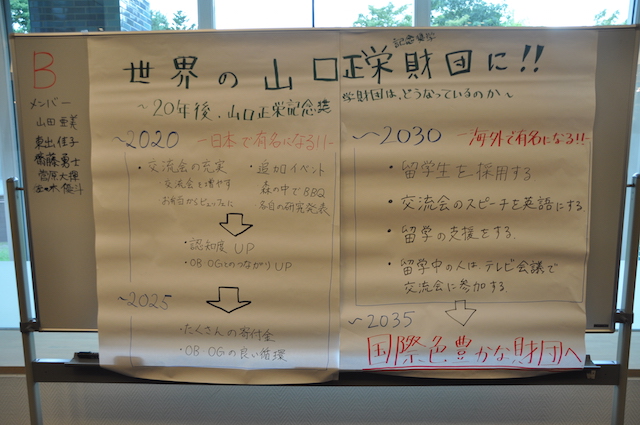 B
メンバー
山田 亜美
東出 佳子
齋藤 勇士
菅原 大輝
金木 俊斗
記念奨学
世界の山口正栄財団に!!
〜20年後、山口正栄記念奨学財団は、どうなっているのか〜
〜2020 ー日本で有名になる!!ー
・交流会の充実
交流会を増やす
お弁当からビュッフェに
・追加イベント
森の中でBBQ
各自の研究発表
・認知度 UP
・OB・OGとのつながり UP
〜2025
・たくさんの寄付金
・OB・OGの良い循環
〜2030 ー海外で有名になる!!ー
・留学生を採用する
・交流会のスピーチを英語にする
・留学の支援をする
・留学中の人は、テレビ会議で
交流会に参加する
〜2035
国際色豊かな財団へ